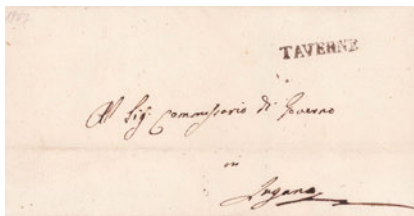 1857
TAVERNE
Al Sig. Commissario di Governo
in
Lugano